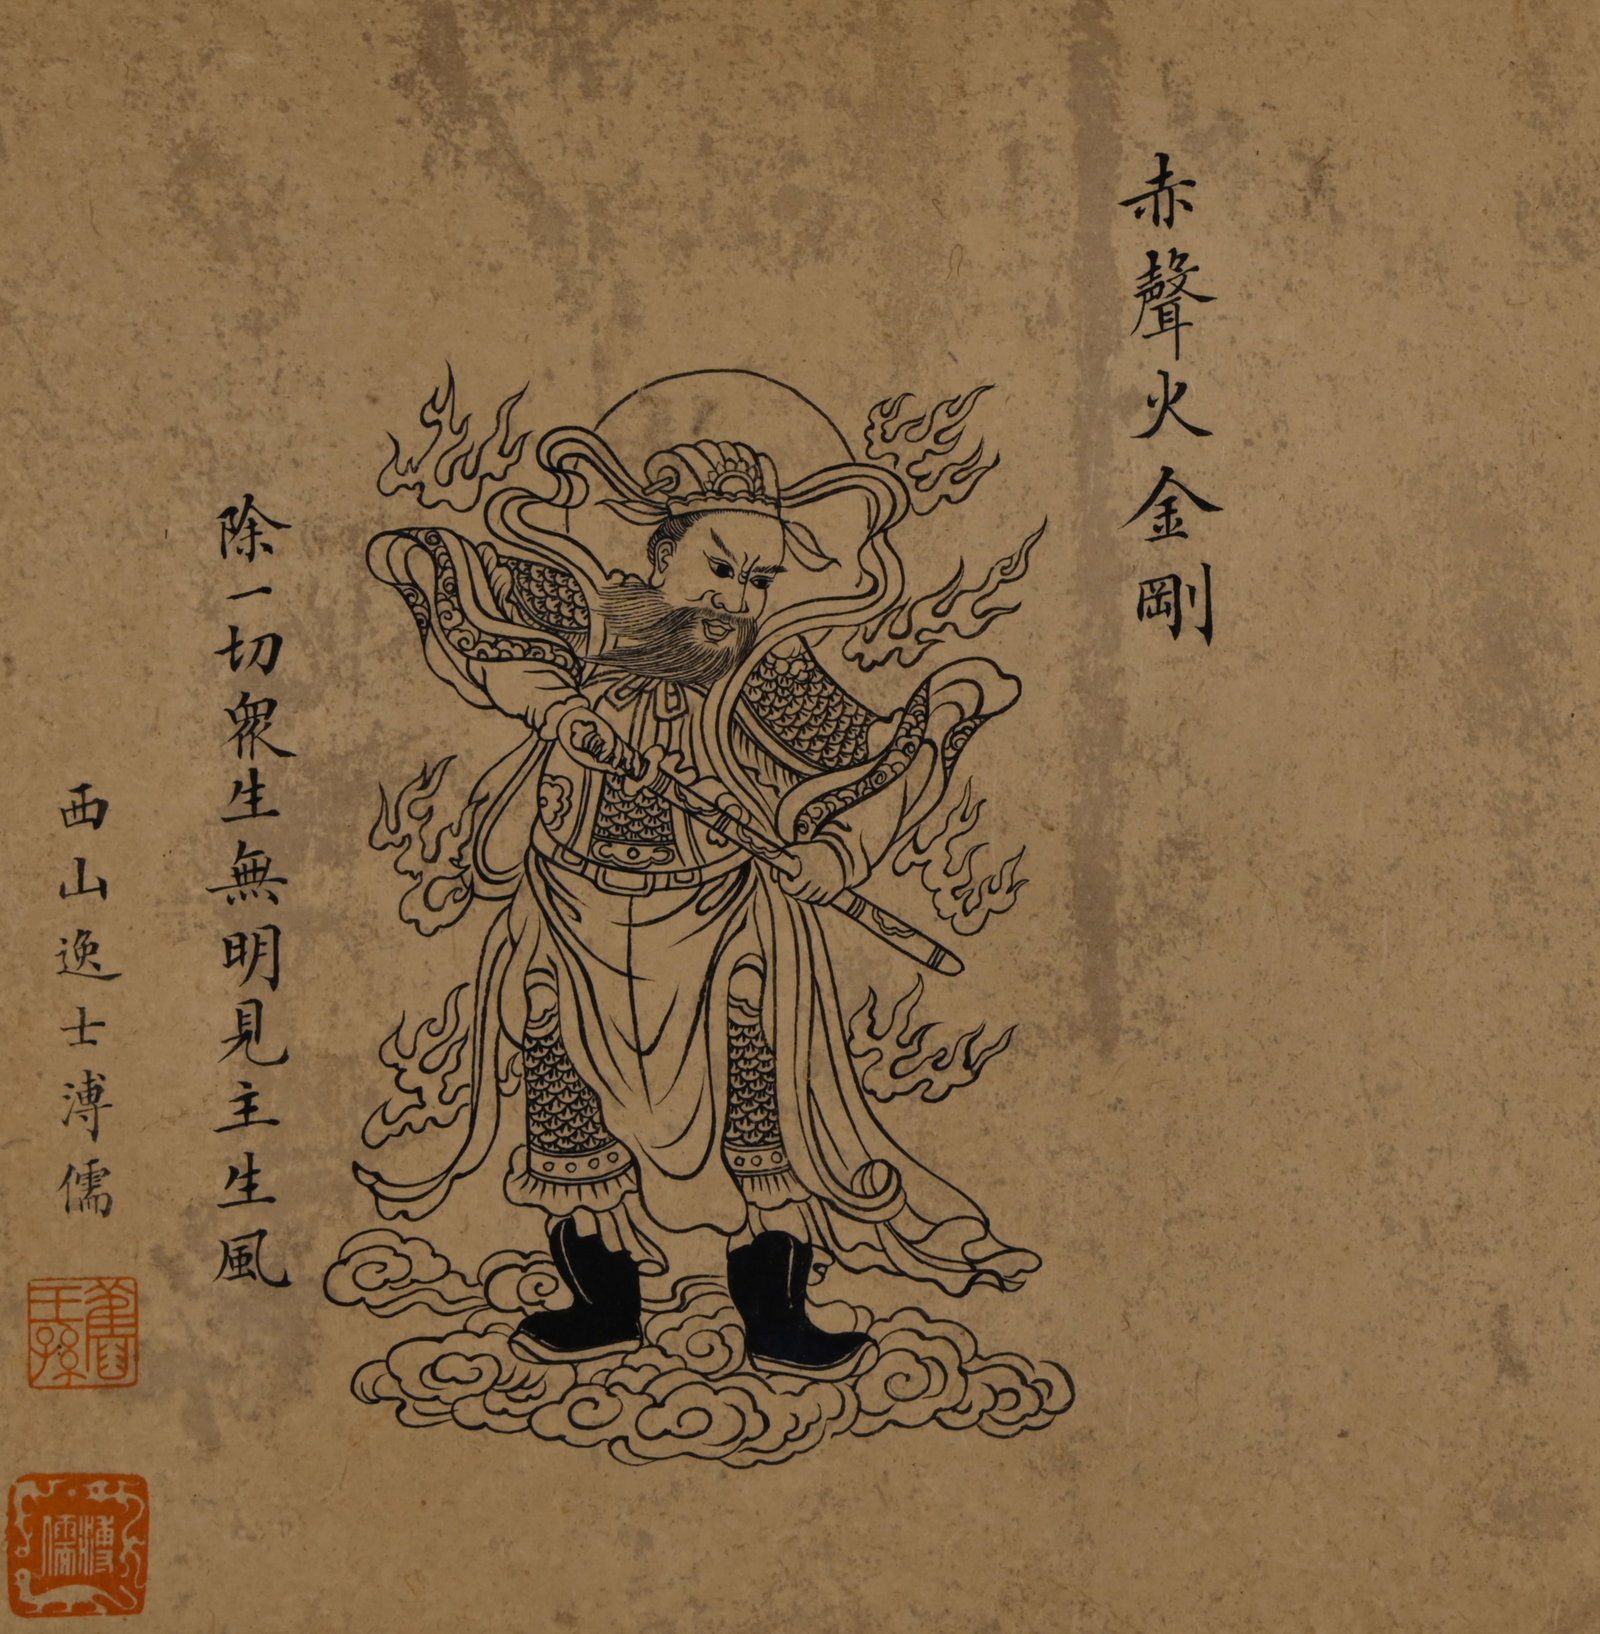 赤聲火金剛
除一切眾生無明見主生風
西山逸士溥儒
舊王孫
溥儒